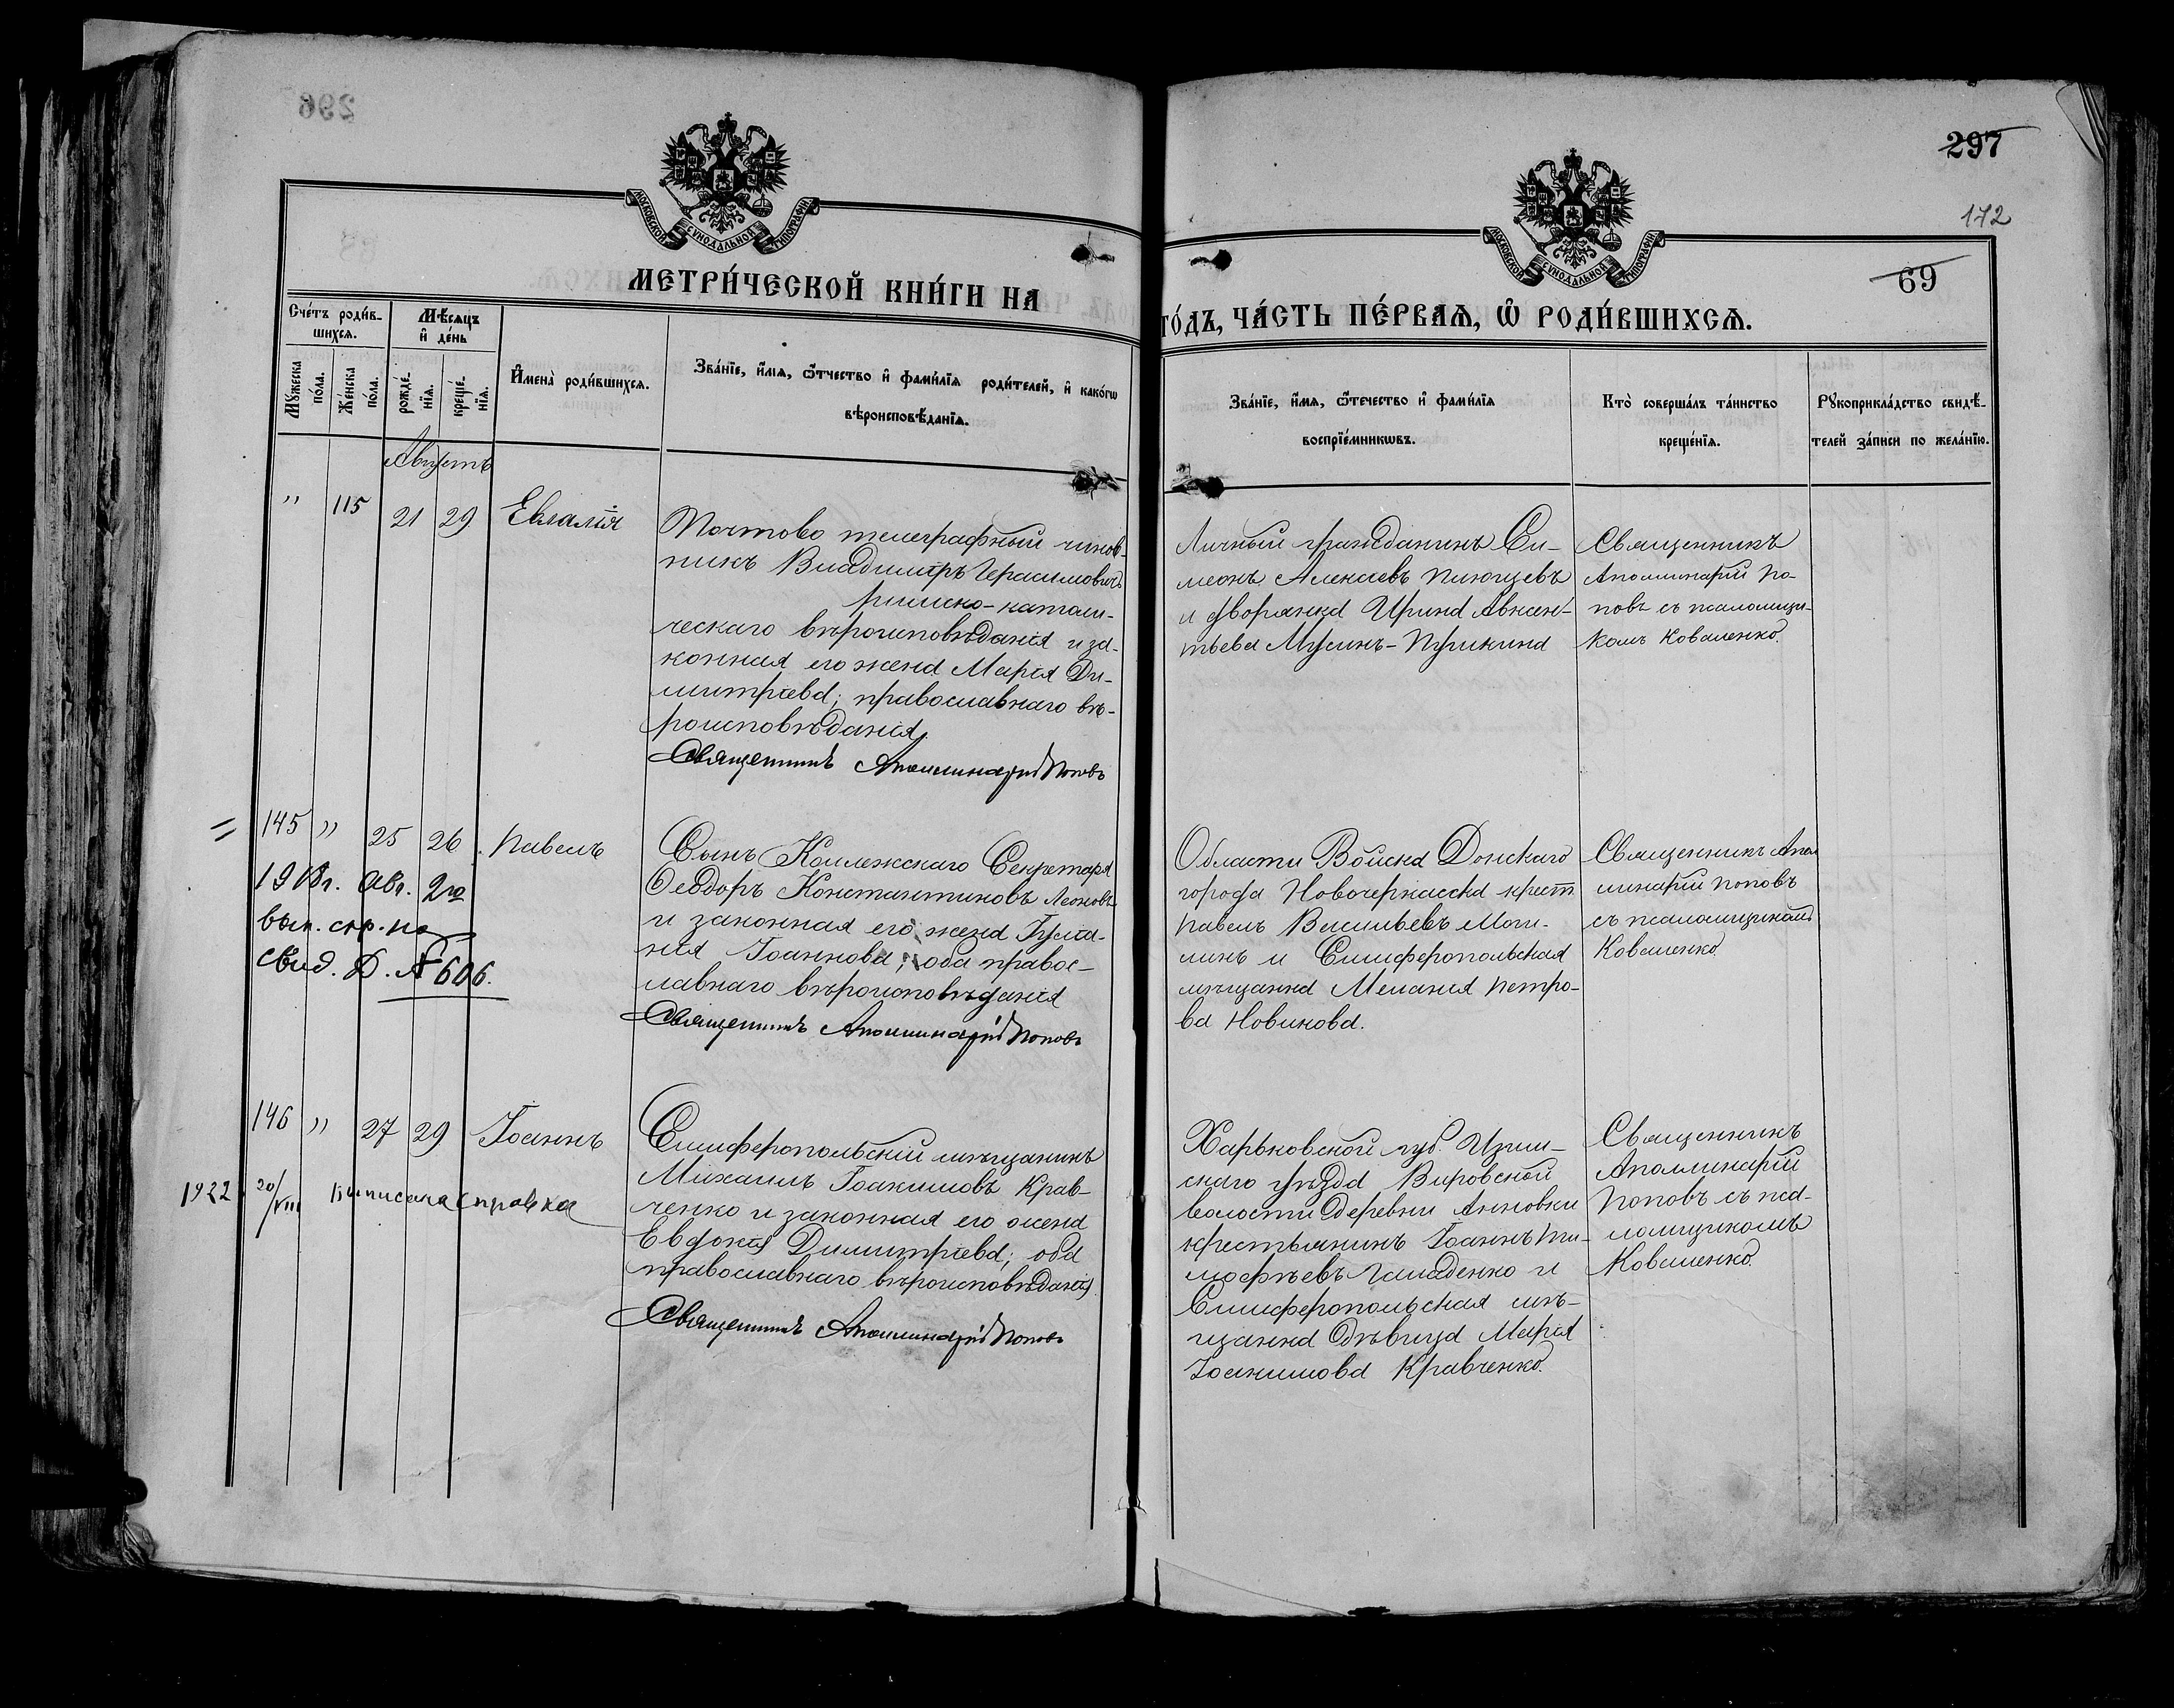 296
297
172
69
МОСКОВСКОЙ СѴНОДАЛЬНОЙ ТИПОГРАФІИ
МОСКОВСКОЙ СѴНОДАЛЬНОЙ ТИПОГРАФІИ
МЕТРИ́ЧЕСКОЙ КНИ́ГИ НА
ГО́ДЪ, ЧА́СТЬ ПЕ́РВАѦ, Ѡ҆ РОДИ́ВШИХСѦ.
Сче́тъ роди́в-
шихсѧ.
Мꙋжеска по́ла.
Же́нска по́ла.
Мѣ́сѧцъ
и҆ де́нь
рожде́-
нїѧ.
креще́-
нїѧ.
И҆мена̀ роди́вшихсѧ.
Зва́нїе, и҆́мѧ, ѻ҆́тчество и҆ фами́лїѧ роди́телей, и҆ како́гѡ
вѣроисповѣ́данїѧ.
Зва́нїе, и҆́мѧ, ѻ҆те́чество и҆ фами́лїѧ
воспрїе́мникѡвъ.
Кто̀ соверша́лъ та́инство
креще́нїѧ.
Рꙋкоприкла́дство свидѣ́-
телей за́писи по жела́нїю.
Августъ
" 115 21 29 Евлалія
Почтово телеграфный чинов-
никъ Владимиръ Герасимовичъ
римско-католи-
ческаго вѣроисповѣданія и за-
конная его жена Марія Ди-
митріева; православнаго вѣ-
роисповѣданія.
Священникъ Аполлинарій Поповъ
Личный гражданинъ Си-
меонъ Алексѣевъ
и дворянка Ирина Авксен-
тьева Мусинъ-Пушкина
Священникъ
Аполлинарій По-
повъ съ псаломщи-
комъ Коваленко.
145 " 25 26 Павелъ
1918г. Авг. 2го
вып. спр. на
свид. Д. № 606.
Сынъ Коллежскаго Секретаря
Ѳеодоръ Константиновъ Леоновъ
и законная его жена Іулiа-
нія Іоаннова; оба правос-
лавнаго вѣроисповѣданія
Священникъ Аполлинарій Поповъ
Области Войска Донскаго
города Новочеркасска крест.
Павелъ Васильевъ Моги-
линъ и Симферопольская
мѣщанка Меланія Петро-
ва Новикова.
Священникъ Апол
линарій Поповъ
съ псаломщикомъ
Коваленко.
146 " 27 29 Іоаннъ
1922 20/VIII выписана справка
Симферопольскій мѣщанинъ
Михаилъ Іоакимовъ Крав-
ченко и законная его жена
Евдокія Димитріева; оба
православнаго вѣроисповѣданія.
Священникъ Аполлинарій Поповъ
Харьковской губ. Изюм-
скаго уѣзда
волости деревни Анновки
крестьянинъ Іоаннъ Ти-
мофѣевъ и
Симферопольская мѣ-
щанка дѣвица Марія
Іоакимова Кравченко.
Священникъ
Аполлинарій
Поповъ съ пса-
ломщикомъ
Коваленко.